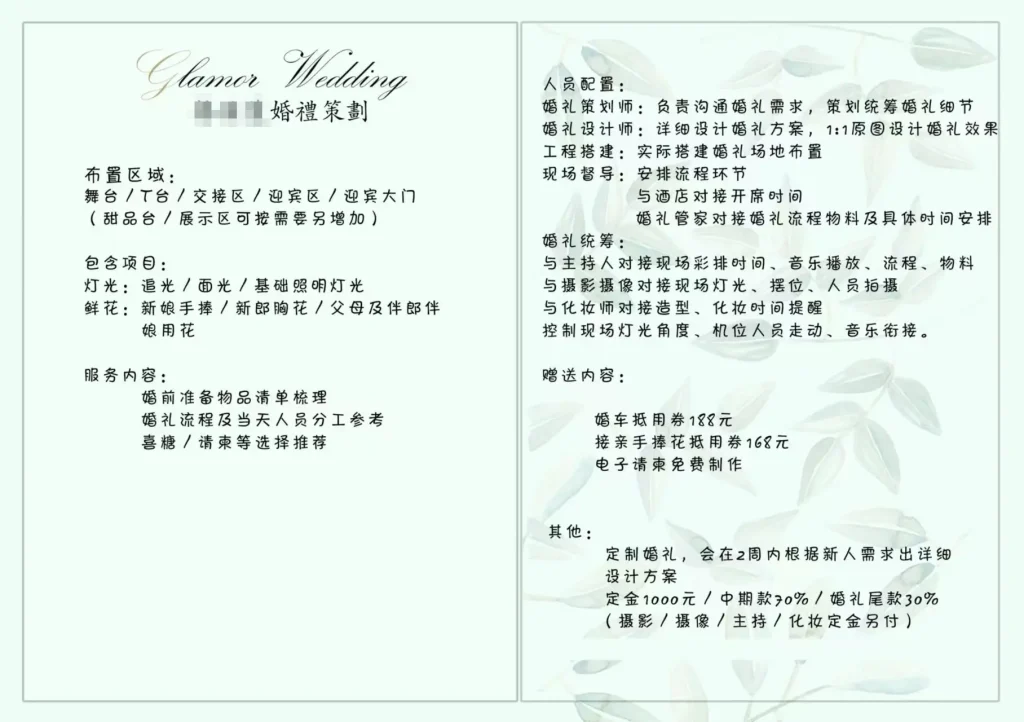 Glamor Wedding
婚禮策劃
布置区域：
舞台/T台/交接区/迎宾区/迎宾大门
（甜品台/展示区可按需要另增加）
包含项目：
灯光：追光/面光/基础照明灯光
鲜花：新娘手捧/新郎胸花/父母及伴郎伴
娘用花
服务内容：
婚前准备物品请单梳理
婚礼流程及当天人员分工参考
喜糖/请柬等选择推荐
人员配置：
婚礼策划师：负责沟通婚礼需求，策划统筹婚礼细节
婚礼设计师：详细设计婚礼方案，1:1原图设计婚礼效果
工程搭建：实际搭建婚礼场地布置
现场督导：安排流程环节
与酒店对接开席时间
婚礼管家对接婚礼流程物料及具体时间安排
婚礼统筹：
与主持人对接现场彩排时间、音乐播放、流程、物料
与摄影摄像对接现场灯光、摆位、人员拍摄
与化妆师对接造型、化妆时间提醒
控制现场灯光角度、机位人员走动、音乐衔接。
赠送内容：
婚车抵用券188元
接亲手捧花抵用券168元
电子请柬免费制作
其他：
定制婚礼，会在2周内根据新人需求出详细
设计方案
定金1000元/中期款70%/婚礼尾款30%
（摄影/摄像/主持/化妆定金另付）